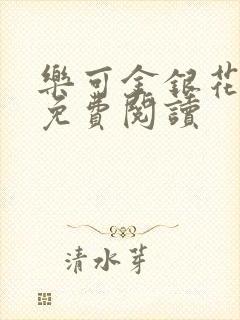 樂可金銀花
免費閱讀
清水芽